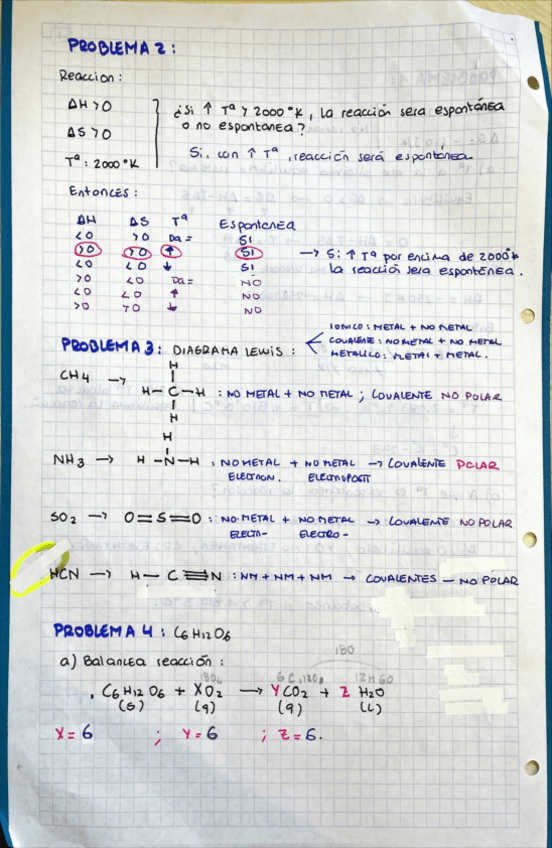 PROBLEMA 2:
Reaccion:
ΔH > 0
ΔS > 0
Tª: 2000°K
¿Si ↑ Tª > 2000°K, la reacción sera espontánea
o no espontanea?
Si, con ↑ Tª, reacción será espontánea.
Entonces:
ΔH ΔS Tª Espontanea
<0 >0 Da= SI
>0 >0 ↑ SI → Si ↑ Tª por encima de 2000°k
<0 <0 ↓ SI la reacción sera espontánea.
>0 <0 Da= NO
<0 <0 ↑ NO
>0 >0 ↓ NO
PROBLEMA 3: DIAGRAMA LEWIS:
IONICO: METAL + NO METAL
COVALENTE: NO METAL + NO METAL
METALICO: METAL + METAL.
H
CH4 → H-C-H : NO METAL + NO METAL ; COVALENTE NO POLAR
H
H
NH3 → H-N-H : NO METAL + NO METAL → COVALENTE POLAR
ELECTRON. ELECTROPOSIT
SO2 → O=S=O : NO METAL + NO METAL → COVALENTE NO POLAR
ELECTR- ELECTRO-
HCN → H-C≡N : NM + NM + NM → COVALENTES - NO POLAR
PROBLEMA 4: C6H12O6
a) Balancea reacción:
180
C6H12O6 + XO2 → YCO2 + Z H2O
(s) (g) (g) (L)
X=6 ; Y=6 ; Z=6.